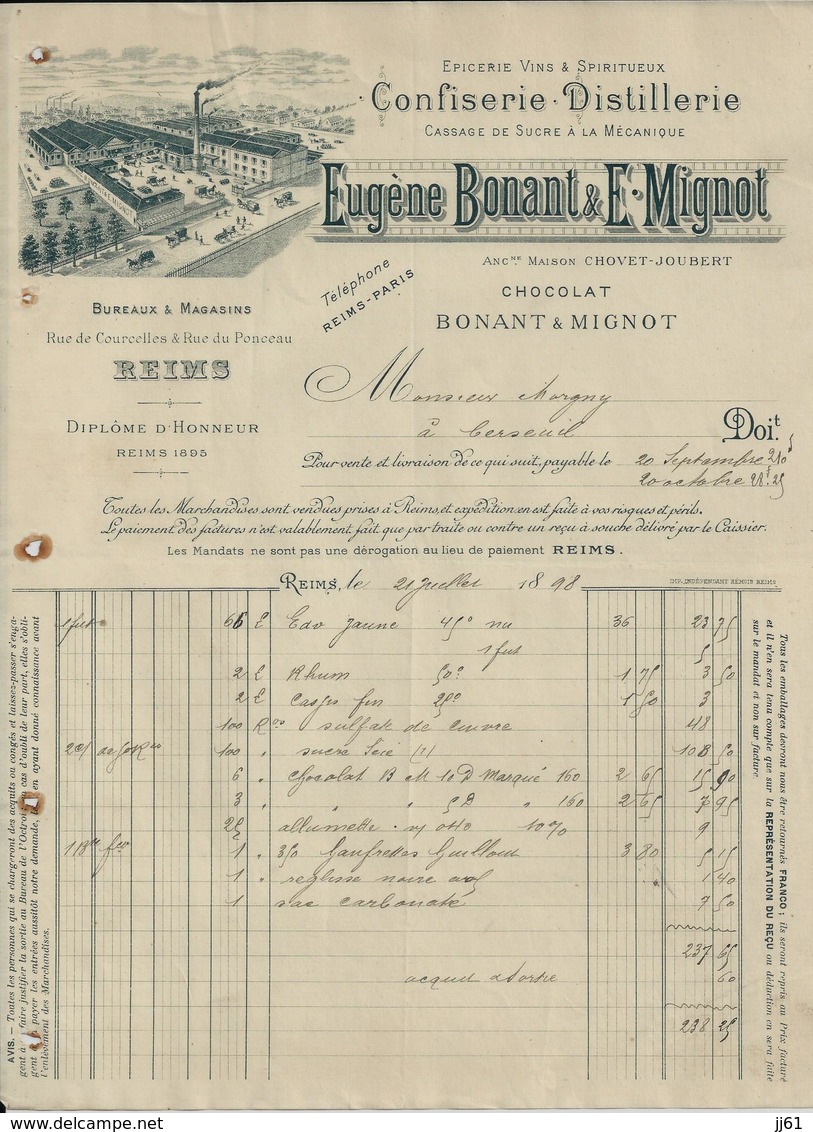 EPICERIE VINS & SPIRITUEUX
Confiserie · Distillerie
CASSAGE DE SUCRE À LA MÉCANIQUE
Eugène Bonant & E. Mignot
ANC.NE MAISON CHOVET-JOUBERT
CHOCOLAT
BONANT & MIGNOT
Téléphone
REIMS-PARIS
BUREAUX & MAGASINS
Rue de Courcelles & Rue du Ponceau
REIMS
DIPLÔME D'HONNEUR
REIMS 1895
Monsieur Morgny
à Cerseuil
Doi.t
Pour vente et livraison de ce qui suit, payable le 20 Septembre 210
20 octobre 28.25
Toutes les Marchandises sont vendues prises à Reims, et expédition en est faite à vos risques et périls.
Le paiement des factures n'est valablement fait que par traite ou contre un reçu à souche délivré par le Caissier.
Les Mandats ne sont pas une dérogation au lieu de paiement REIMS.
REIMS, le 21 Juillet 1898
IMP. INDÉPENDANT RÉMOIS REIMS
1 fut 66 L Edv jaune 45° nu 36 23 75
1 fut 5
2 L Rhum 50° 1 75 3 50
2 L Cassis fin 25° 1 50 3
100 Kos sulfate de cuivre 48
100 " sucre Scié (1) 108 50
6 " chocolat B M 10 D Marqué 160 2 65 15 90
3 " " " 5 D " 160 2 65 7 95
25 allumette 10% 9
1 " 350 Gaufrettes Guillout 3 80 5 15
1 " réglisse noire 1 40
1 sac carbonate 7 50
237 65
acquit 60
238 25
AVIS. — Toutes les personnes qui se chargeront des acquits ou congés et laissez-passer s'enga-
gent à faire justifier la sortie au Bureau de l'Octroi; en cas d'oubli de leur part, elles s'obli-
gent à payer les entrées aussitôt notre demande, en ayant donné connaissance avant
l'enlèvement des Marchandises.
Tous les emballages devront nous être retournés FRANCO; ils seront repris au Prix facturé
et il n'en sera tenu compte que sur la REPRÉSENTATION DU REÇU ou déduction en sera faite
sur le mandat et non sur facture.
jj61